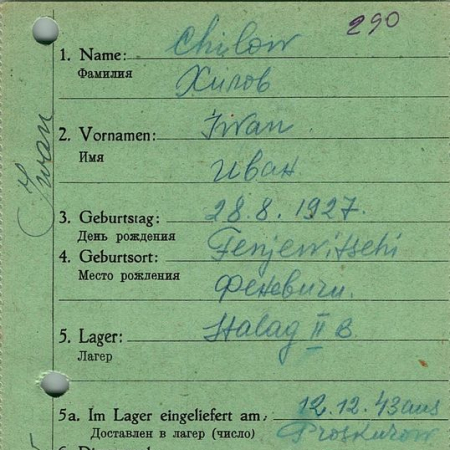 290
1. Name: Chilow
Фамилия Хилов
2. Vornamen: Iwan
Имя Иван
Iwan
3. Geburtstag: 28.8.1927.
День рождения
4. Geburtsort: Fenjewitschi
Место рождения Феневичи.
5. Lager: Stalag II B
Лагерь
5a. Im Lager eingeliefert am: 12.12.43 aus
Доставлен в лагерь (число) Proskurow